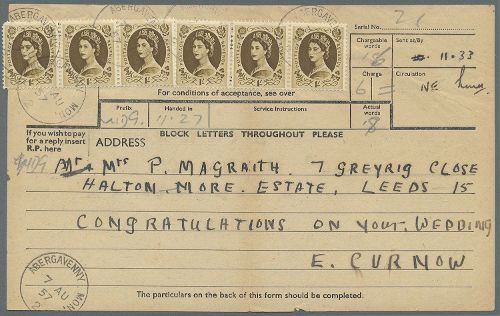 Serial No. 26
ABERGAVENNY
Chargeable words 18
Sent at/By 11.33
For conditions of acceptance, see over
Charge 6 =
Circulation
Prefix
Handed in 11.27
Service Instructions
Actual words 18
If you wish to pay for a reply insert R.P. here
BLOCK LETTERS THROUGHOUT PLEASE
ADDRESS
Mr & Mrs P. MAGRAITH. 7 GREYRIG CLOSE
HALTON. MORE. ESTATE, LEEDS 15
CONGRATULATIONS ON YOUR. WEDDING
E. CURNOW
ABERGAVENNY MON.
7 AU
57
The particulars on the back of this form should be completed.